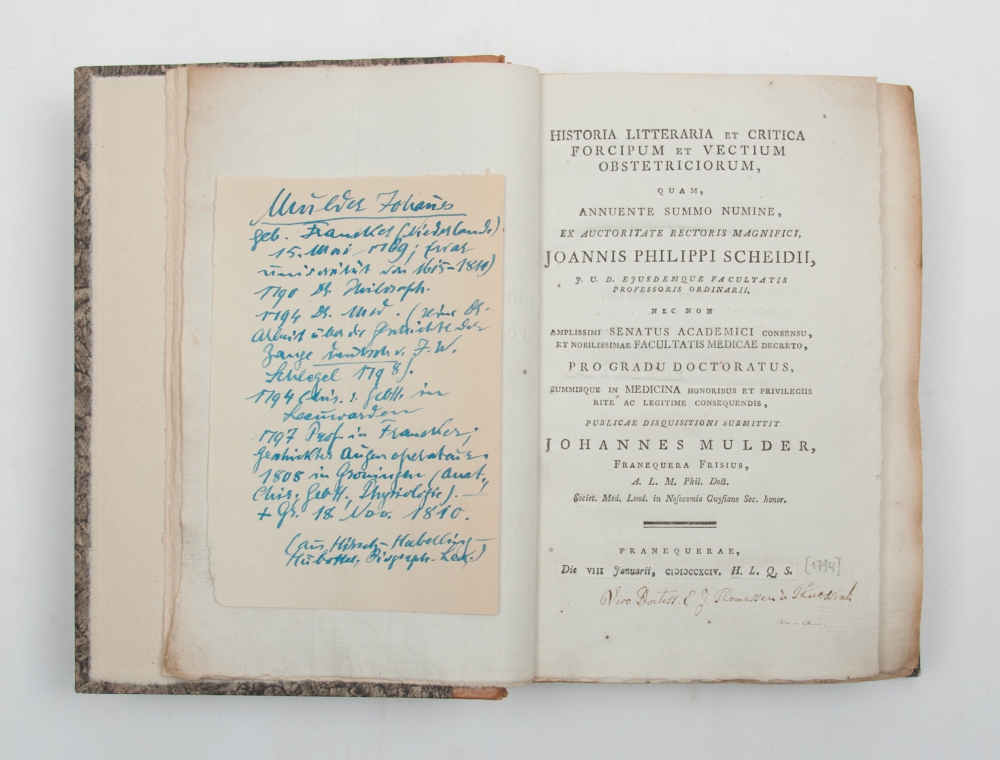 Mulder Johannes
geb. Franeker (Niederlande)
15. Mai 1769; (war
Universität von 1615-1810)
1790 Dr. Philosoph.
1794 Dr. Med. (seine Dr.
Arbeit über die Geschichte der
Zange deutsch v. J. W.
Schlegel 1798).
1794 Chir. u. Gebh. in
Leeuwarden
1797 Prof. in Franeker;
Geschickter Augenoperateur.
1808 in Groningen (Anat.,
Chir., Gebh., Physiologie). —
+ Gr. 18. Nov. 1810.
(aus Hirsch-Haberling-
Hübotter, Biograph. Lex.)
HISTORIA LITTERARIA ET CRITICA
FORCIPUM ET VECTIUM
OBSTETRICIORUM,
QUAM,
ANNUENTE SUMMO NUMINE,
EX AUCTORITATE RECTORIS MAGNIFICI,
JOANNIS PHILIPPI SCHEIDII,
J. U. D. EJUSDEMQUE FACULTATIS
PROFESSORIS ORDINARII,
NEC NON
AMPLISSIMI SENATUS ACADEMICI CONSENSU,
ET NOBILISSIMAE FACULTATIS MEDICAE DECRETO,
PRO GRADU DOCTORATUS,
SUMMISQUE IN MEDICINA HONORIBUS ET PRIVILEGIIS
RITE AC LEGITIME CONSEQUENDIS,
PUBLICAE DISQUISITIONI SUBMITTIT
JOHANNES MULDER,
FRANEQUERA FRISIUS,
A. L. M. Phil. Doct.
Societ. Med. Lond. in Nosocomio Guysiano Soc. honor.
FRANEQUERAE,
Die VIII Januarii, CIↃIↃCCXCIV. H. L. Q. S. [1794]
Viro Doctiss. E. J. Thomassen à Thuessink